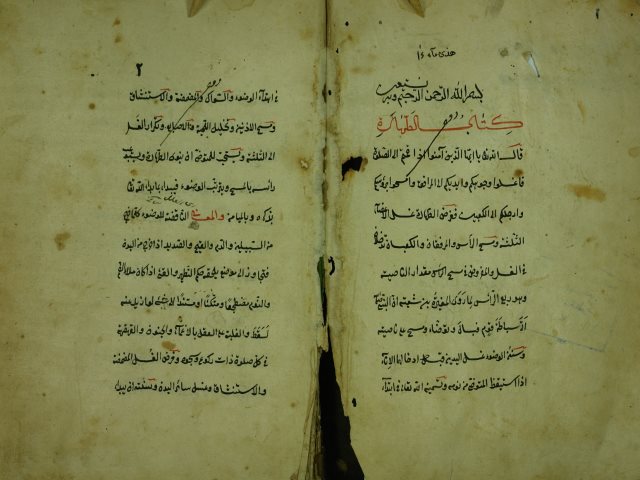 بسم الله الرحمن الرحيم وبه نستعين
كتاب الطهارة
قال الله تعالى يا ايها الذين آمنوا اذا قمتم الى الصلوة
فاغسلوا وجوهكم وايديكم الى المرافق وامسحوا برؤسكم
وارجلكم الى الكعبين ففرض الطهارة غسل الاعضاء
الثلثة ومسح الرأس والمرفقان والكعبان تدخلان
في الغسل والمفروض في مسح الرأس مقدار الناصية
وهو ربع الرأس لما روى المغيرة بن شعبة ان النبي
اتى سباطة قوم فبال وتوضاء ومسح على ناصيته
وسنن الوضوء غسل اليدين قبل ادخالهما الاناء
اذا استيقظ المتوضى من نومه وتسمية الله تعالى في ابتداء
٢
في ابتداء الوضوء والسواك والمضمضة والاستنشاق
ومسح الاذنين وتخليل اللحية والاصابع وتكرار الغسل
الى الثلثة ويستحب للمتوضى ان ينوى الطهارة ويستوعب
رأسه بالمسح ويرتب الوضوء فيبداء بما بداء الله تعالى
بذكره وبالميامن والمعانى الناقضة للوضوء كل ما خرج
من السبيلين والدم والقيح والصديد اذا خرج من البدن
فتجاوز الى موضع يلحقه حكم التطهير والقئ اذا كان ملأ الفم
والنوم مضطجعا او متكئا او مستندا الى شئ لو ازيل عنه
لسقط والغلبة على العقل بالاغماء والجنون والقهقهة
في كل صلوة ذات ركوع وسجود وفرض الغسل المضمضة
والاستنشاق وغسل سائر البدن وسنته ان يبداء